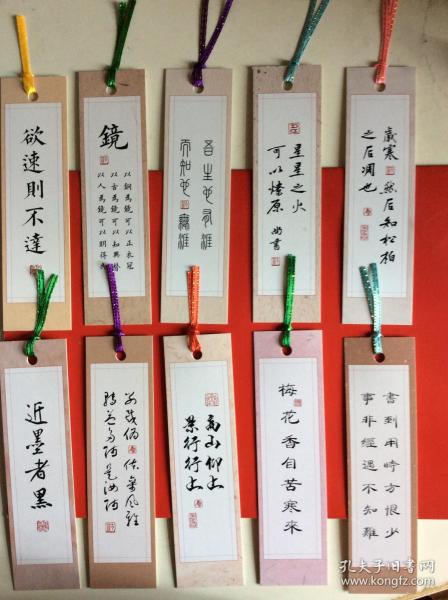 欲速則不達
鏡
以銅為鏡可以正衣冠
以古為鏡可以知興替
以人為鏡可以明得失
吾生也有涯
而知也無涯
星星之火
可以燎原 尚書
歲寒然后知松柏
之后凋也
近墨者黑
别裁偽体親风雅
转益多师是汝师
高山仰止
景行行止
梅花香自苦寒來
書到用時方恨少
事非經過不知難
孔夫子旧书网
www.kongfz.com